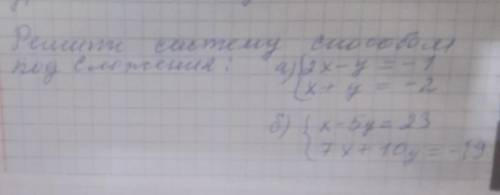 Решити систему способом
под сложения: а) { 2x - y = -1
{ x + y = -2
б) { x - 5y = 23
{ 7x + 10y = -19